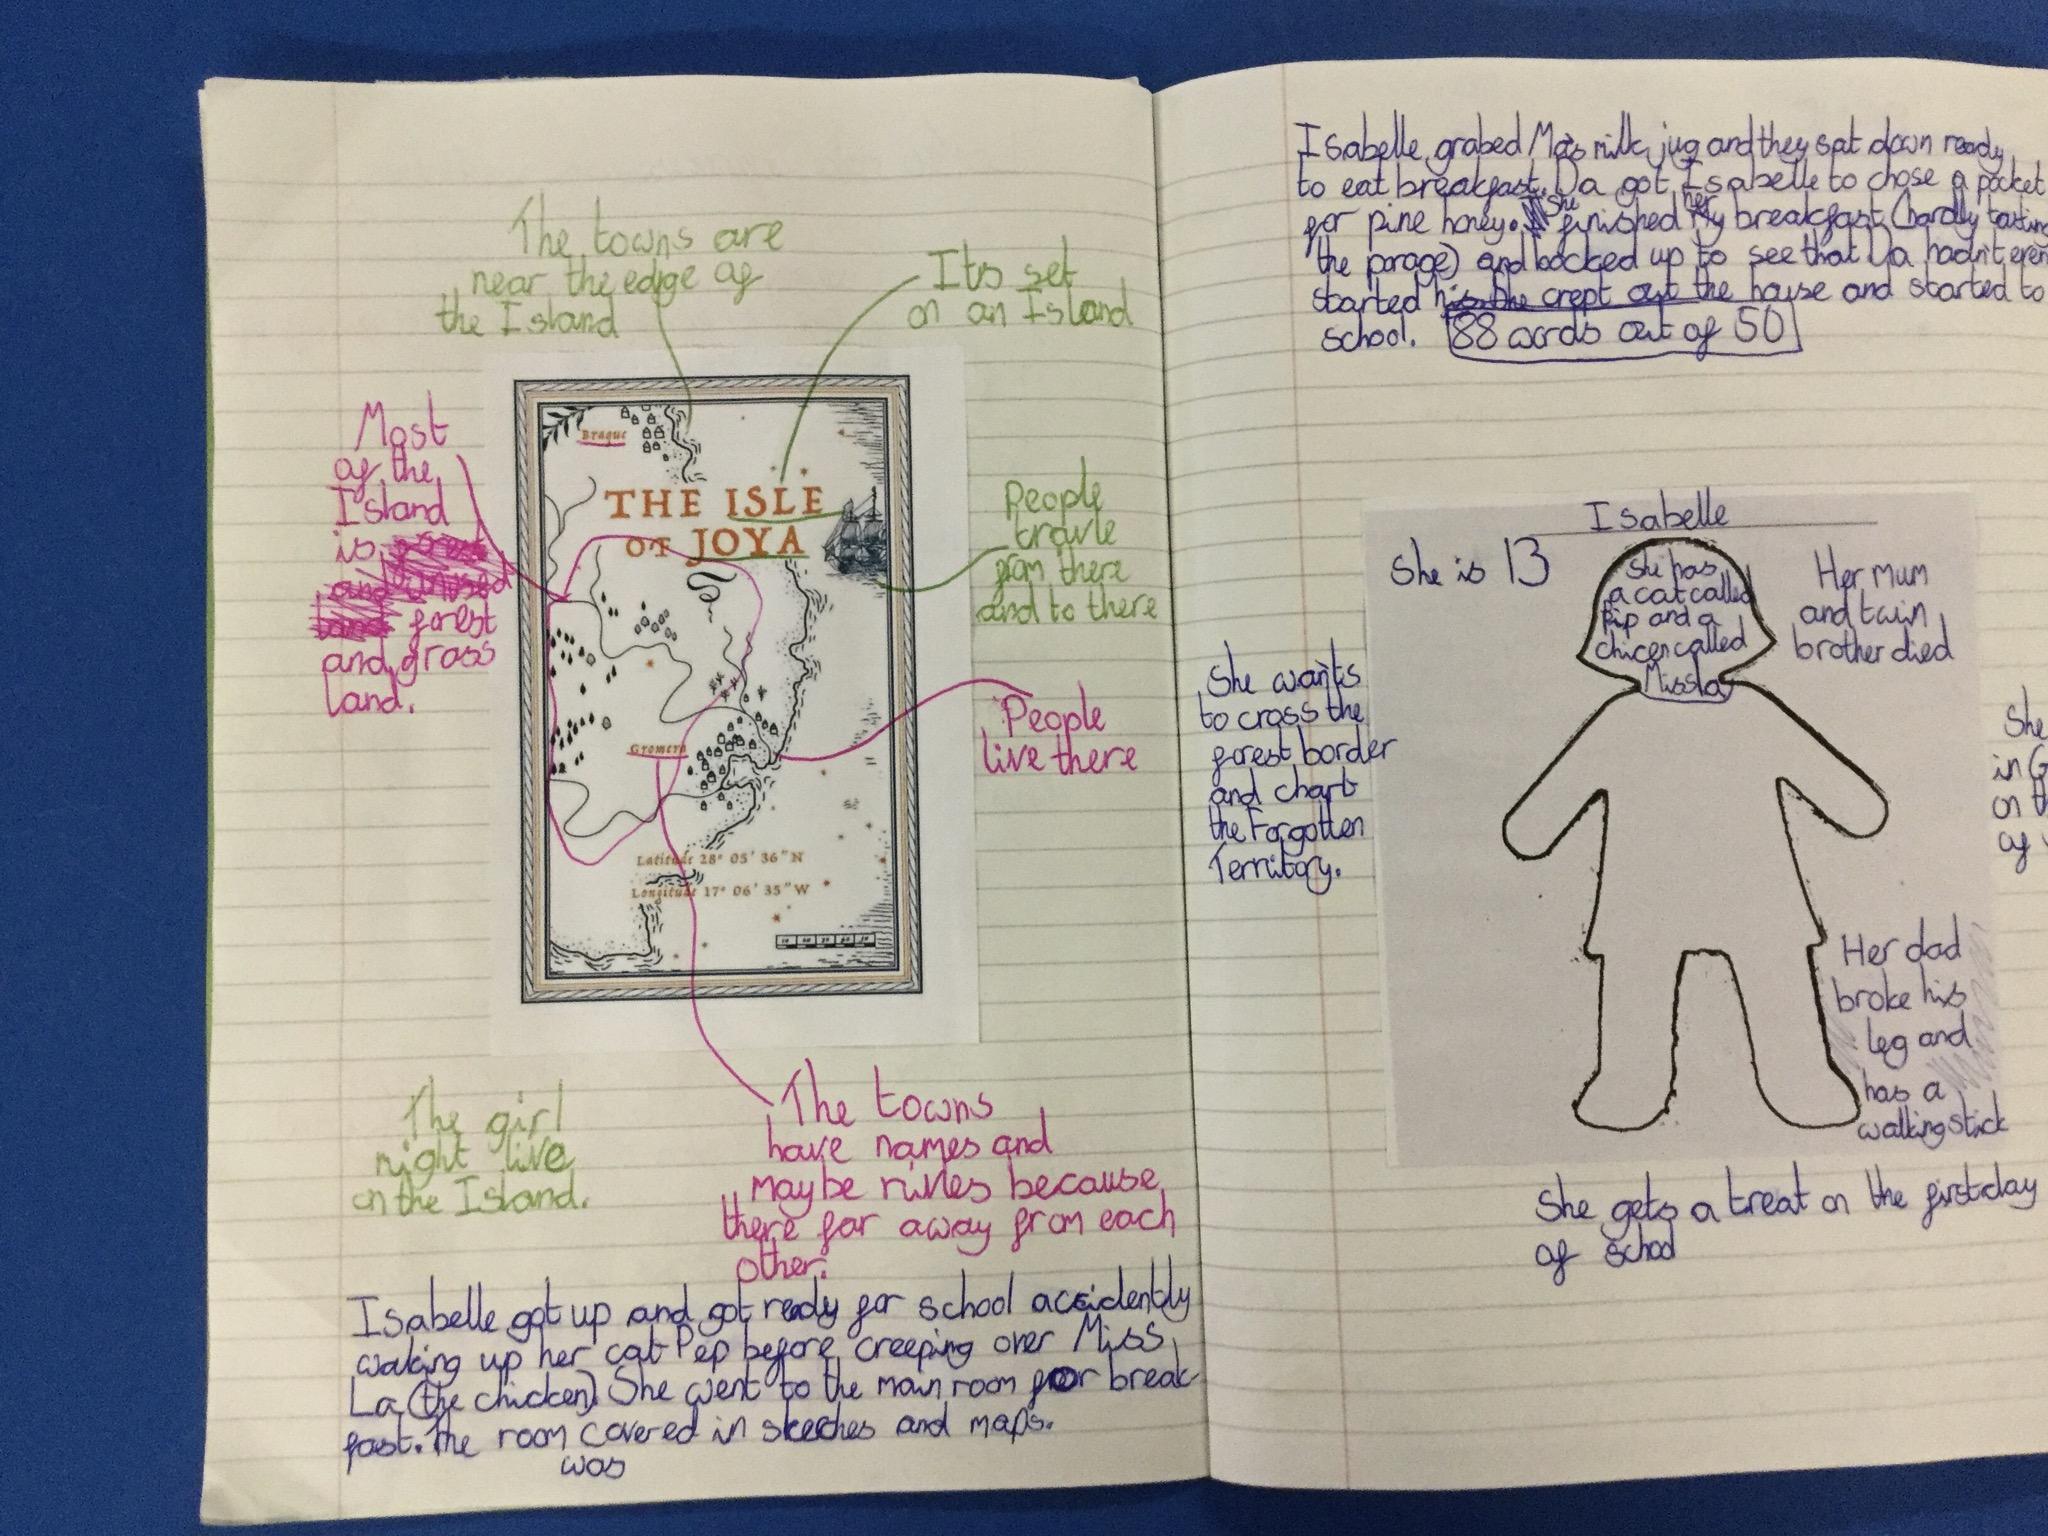 The towns are
near the edge of
the Island
Its set
on an Island
Most
of the
Island
is
forest
and grass
land.
Braque
THE ISLE
OF JOYA
Gromera
Latitude 28° 05' 36"N
Longitude 17° 06' 35"W
People
travle
from there
and to there
People
live there
The girl
might live
on the Island.
The towns
have names and
maybe rules because
there far away from each
other.
Isabelle got up and got ready for school accidently
waking up her cat Pep before creeping over Miss
La (the chicken). She went to the main room for break-
fast. The room covered in skeches and maps.
was
Isabelle grabed Ma's milk jug and they sat down ready
to eat breakfast. Da got Isabelle to chose a pocket
for pine honey. She finished her breakfast (hardly tasting
the porage) and looked up to see that Da hadn't even
started his. She crept out the house and started to
school. 88 words out of 50
Isabelle
She is 13
She has
a cat called
Pip and a
chicen called
Miss la
Her mum
and twin
brother died
She wants
to cross the
forest border
and chart
the Forgotten
Territory.
She
in G
on th
of
Her dad
broke his
leg and
has a
walking stick
She gets a treat on the first day
of school